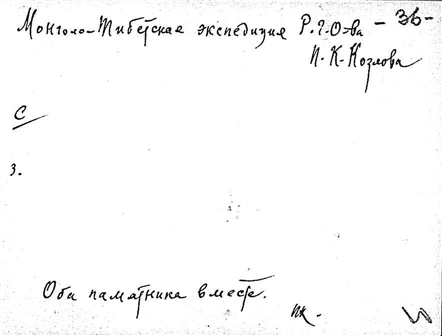 Монголо-Тибетская экспедиция Р.Г.О-ва - 36 -
П. К. Козлова
С
3.
Оба памятника вместе.
ПК.